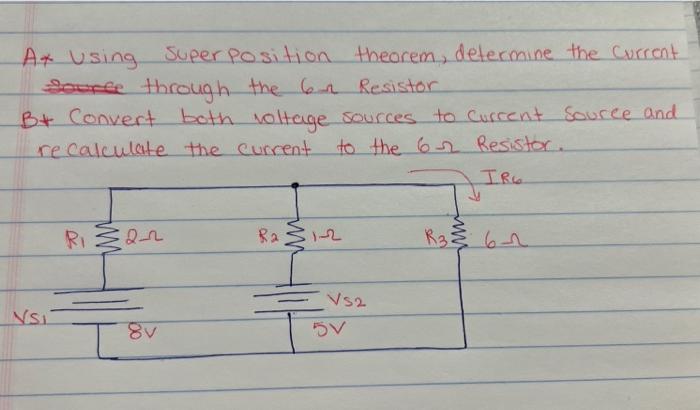 A* Using Superposition theorem, determine the Current
through the 6Ω Resistor
B* Convert both voltage sources to current Source and
recalculate the current to the 6Ω Resistor.
IR6
R1 2Ω R2 1Ω R3 6Ω
VS1 8V VS2 5V